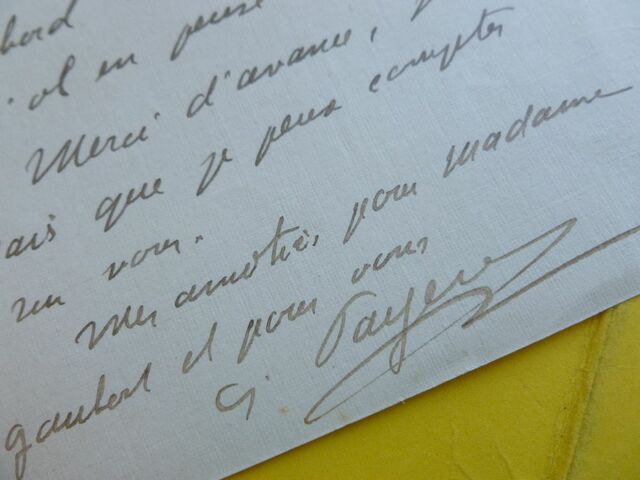 bord
ol en pense
Merci d'avance, j
ais que je peux compter
sur vous.
Mes amitiés, pour Madame
gaubert et pour vous
G. Payen